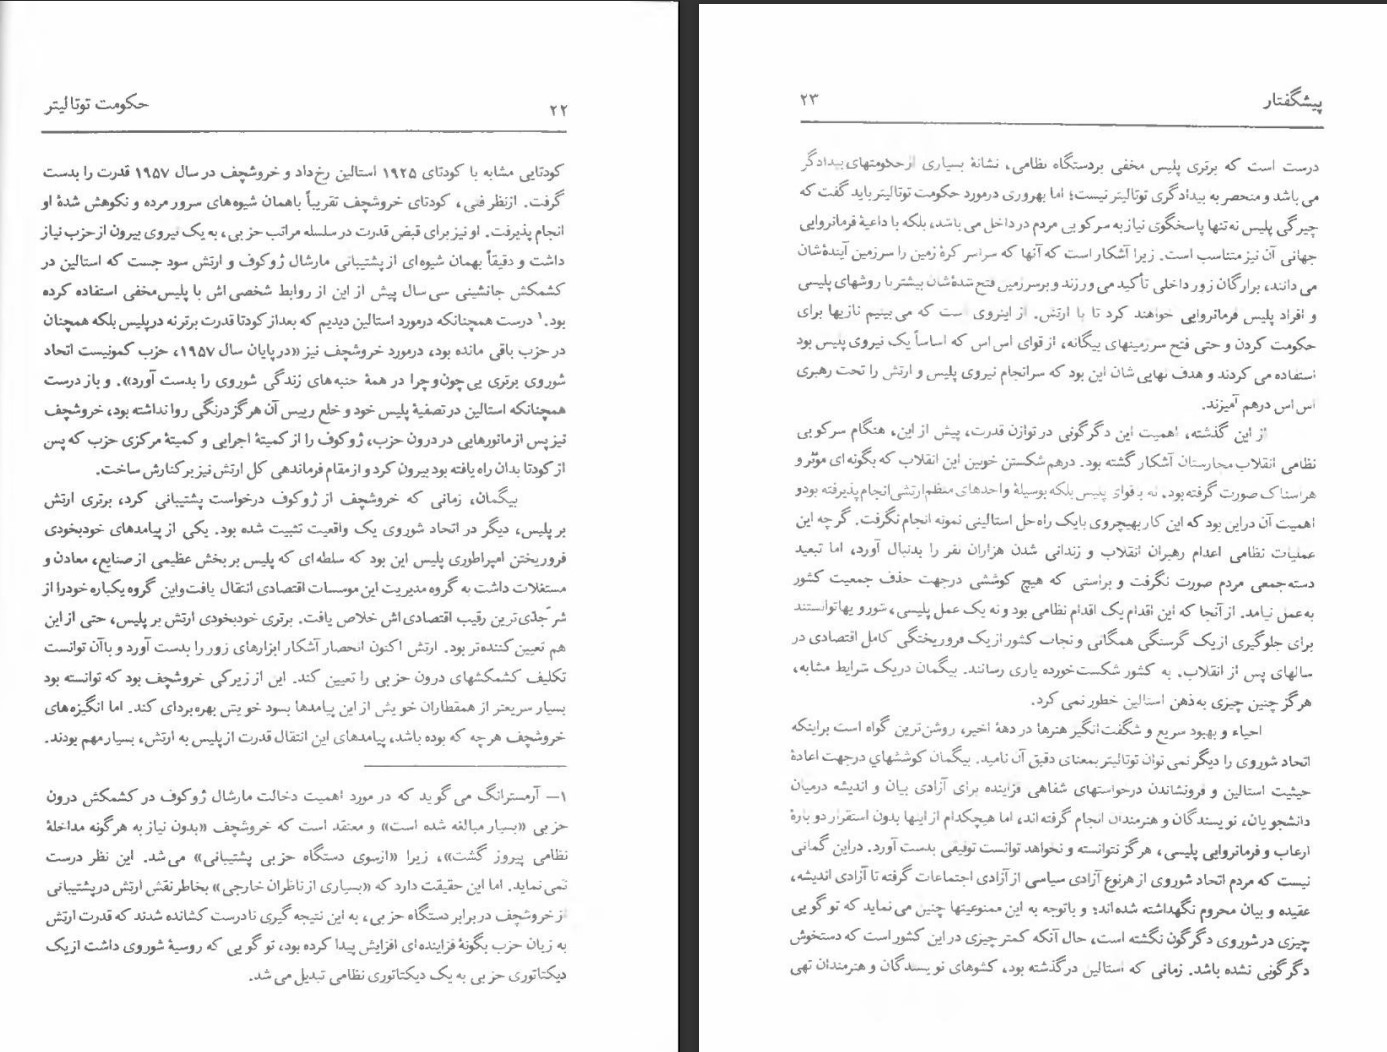 حکومت توتالیتر
۲۲
کودتایی مشابه با کودتای ۱۹۲۵ استالین رخ‌داد و خروشچف در سال ۱۹۵۷ قدرت را بدست
گرفت. ازنظر فنی، کودتای خروشچف تقریباً باهمان شیوه‌های سرور مرده و نکوهش شدهٔ او
انجام پذیرفت. او نیز برای قبض قدرت در سلسله مراتب حزبی، به یک نیروی بیرون از حزب نیاز
داشت و دقیقاً بهمان شیوه‌ای از پشتیبانی مارشال ژوکوف و ارتش سود جست که استالین در
کشمکش جانشینی سی سال پیش از این از روابط شخصی‌اش با پلیس مخفی استفاده کرده
بود.۱ درست همچنانکه درمورد استالین دیدیم که بعداز کودتا قدرت برتر نه درپلیس بلکه همچنان
در حزب باقی مانده بود، درمورد خروشچف نیز «در پایان سال ۱۹۵۷، حزب کمونیست اتحاد
شوروی برتری بی‌چون‌وچرا در همهٔ جنبه‌های زندگی شوروی را بدست آورد». و باز درست
همچنانکه استالین در تصفیهٔ پلیس خود و خلع رییس آن هرگز درنگی روا نداشته بود، خروشچف
نیز پس از مانورهایی در درون حزب، ژوکوف را از کمیتهٔ اجرایی و کمیتهٔ مرکزی حزب که پس
از کودتا بدان راه یافته بود بیرون کرد و از مقام فرماندهی کل ارتش نیز برکنارش ساخت.
بیگمان، زمانی که خروشچف از ژوکوف درخواست پشتیبانی کرد، برتری ارتش
بر پلیس، دیگر در اتحاد شوروی یک واقعیت تثبیت شده بود. یکی از پیامدهای خودبخودی
فروریختن امپراطوری پلیس این بود که سلطه‌ای که پلیس بر بخش عظیمی از صنایع، معادن و
مستغلات داشت به گروه مدیریت این موسسات اقتصادی انتقال یافت‌واین گروه یکباره خودرا از
شر جدّی‌ترین رقیب اقتصادی‌اش خلاص یافت. برتری خودبخودی ارتش بر پلیس، حتی از این
هم تعیین کننده‌تر بود. ارتش اکنون انحصار آشکار ابزارهای زور را بدست آورد و باآن توانست
تکلیف کشمکشهای درون حزبی را تعیین کند. این از زیرکی خروشچف بود که توانسته بود
بسیار سریعتر از همقطاران خویش از این پیامدها بسود خویش بهره‌برداری کند. اما انگیزه‌های
خروشچف هرچه که بوده باشد، پیامدهای این انتقال قدرت از پلیس به ارتش، بسیار مهم بودند.
۱– آرمسترانگ می‌گوید که در مورد اهمیت دخالت مارشال ژوکوف در کشمکش درون
حزبی «بسیار مبالغه شده است» و معتقد است که خروشچف «بدون نیاز به هرگونه مداخلهٔ
نظامی پیروز گشت»، زیرا «ازسوی دستگاه حزبی پشتیبانی» می‌شد. این نظر درست
نمی‌نماید. اما این حقیقت دارد که «بسیاری از ناظران خارجی» بخاطر نقش ارتش در پشتیبانی
از خروشچف در برابر دستگاه حزبی، به این نتیجه‌گیری نادرست کشانده شدند که قدرت ارتش
به زیان حزب بگونهٔ فزاینده‌ای افزایش پیدا کرده بود، تو گویی که روسیهٔ شوروی داشت از یک
دیکتاتوری حزبی به یک دیکتاتوری نظامی تبدیل می‌شد.
پیشگفتار
۲۳
درست است که برتری پلیس مخفی بردستگاه نظامی، نشانهٔ بسیاری از حکومتهای بیدادگر
می‌باشد و منحصر به بیدادگری توتالیتر نیست؛ اما بهروری درمورد حکومت توتالیتر باید گفت که
چیرگی پلیس نه‌تنها پاسخگوی نیاز به سرکوبی مردم در داخل می‌باشد، بلکه با داعیهٔ فرمانروایی
جهانی آن نیز متناسب است. زیرا آشکار است که آنها که سراسر کرهٔ زمین را سرزمین آیندهٔشان
می‌دانند، بر ارگان زور داخلی تأکید می‌ورزند و بر سرزمین فتح شدهٔشان بیشتر با روشهای پلیسی
و افراد پلیس فرمانروایی خواهند کرد تا با ارتش. از اینروی است که می‌بینیم نازیها برای
حکومت کردن و حتی فتح سرزمینهای بیگانه، از قوای اس‌اس که اساساً یک نیروی پلیس بود
استفاده می‌کردند و هدف نهایی‌شان این بود که سرانجام نیروی پلیس و ارتش را تحت رهبری
اس‌اس درهم آمیزند.
از این گذشته، اهمیت این دگرگونی در توازن قدرت، پیش از این، هنگام سرکوبی
نظامی انقلاب مجارستان آشکار گشته بود. درهم‌شکستن خونین این انقلاب که بگونه‌ای موثر و
هراسناک صورت گرفته بود، نه با قوای پلیس بلکه بوسیلهٔ واحدهای منظم ارتشی انجام پذیرفته بود و
اهمیت آن دراین بود که این کار بهیچروی با یک راه حل استالینی نمونه انجام نگرفت. گرچه این
عملیات نظامی اعدام رهبران انقلاب و زندانی شدن هزاران نفر را بدنبال آورد، اما تبعید
دسته‌جمعی مردم صورت نگرفت و براستی که هیچ کوششی درجهت حذف جمعیت کشور
به‌عمل نیامد. از آنجا که این اقدام یک اقدام نظامی بود و نه یک عمل پلیسی، شوروی‌ها توانستند
برای جلوگیری از یک گرسنگی همگانی و نجات کشور از یک فروریختگی کامل اقتصادی در
سالهای پس از انقلاب، به کشور شکست خورده یاری رسانند. بیگمان در یک شرایط مشابه،
هرگز چنین چیزی به‌ذهن استالین خطور نمی‌کرد.
احیاء و بهبود سریع و شگفت‌انگیز هنرها در دههٔ اخیر، روشن‌ترین گواه است براینکه
اتحاد شوروی را دیگر نمی‌توان توتالیتر بمعنای دقیق آن نامید. بیگمان کوششهای درجهت اعادهٔ
حیثیت استالین و فرونشاندن درخواستهای شفاهی فزاینده برای آزادی بیان و اندیشه درمیان
دانشجویان، نویسندگان و هنرمندان انجام گرفته‌اند، اما هیچکدام از اینها بدون استقرار دوبارهٔ
ارعاب و فرمانروایی پلیسی، هرگز نتوانسته و نخواهد توانست توفیقی بدست آورد. دراین گمانی
نیست که مردم اتحاد شوروی از هرنوع آزادی سیاسی از آزادی اجتماعات گرفته تا آزادی اندیشه،
عقیده و بیان محروم نگهداشته شده‌اند؛ و باتوجه به این ممنوعیتها چنین می‌نماید که تو گویی
چیزی در شوروی دگرگون نگشته است، حال آنکه کمتر چیزی در این کشور است که دستخوش
دگرگونی نشده باشد. زمانی که استالین درگذشته بود، کشوهای نویسندگان و هنرمندان تهی